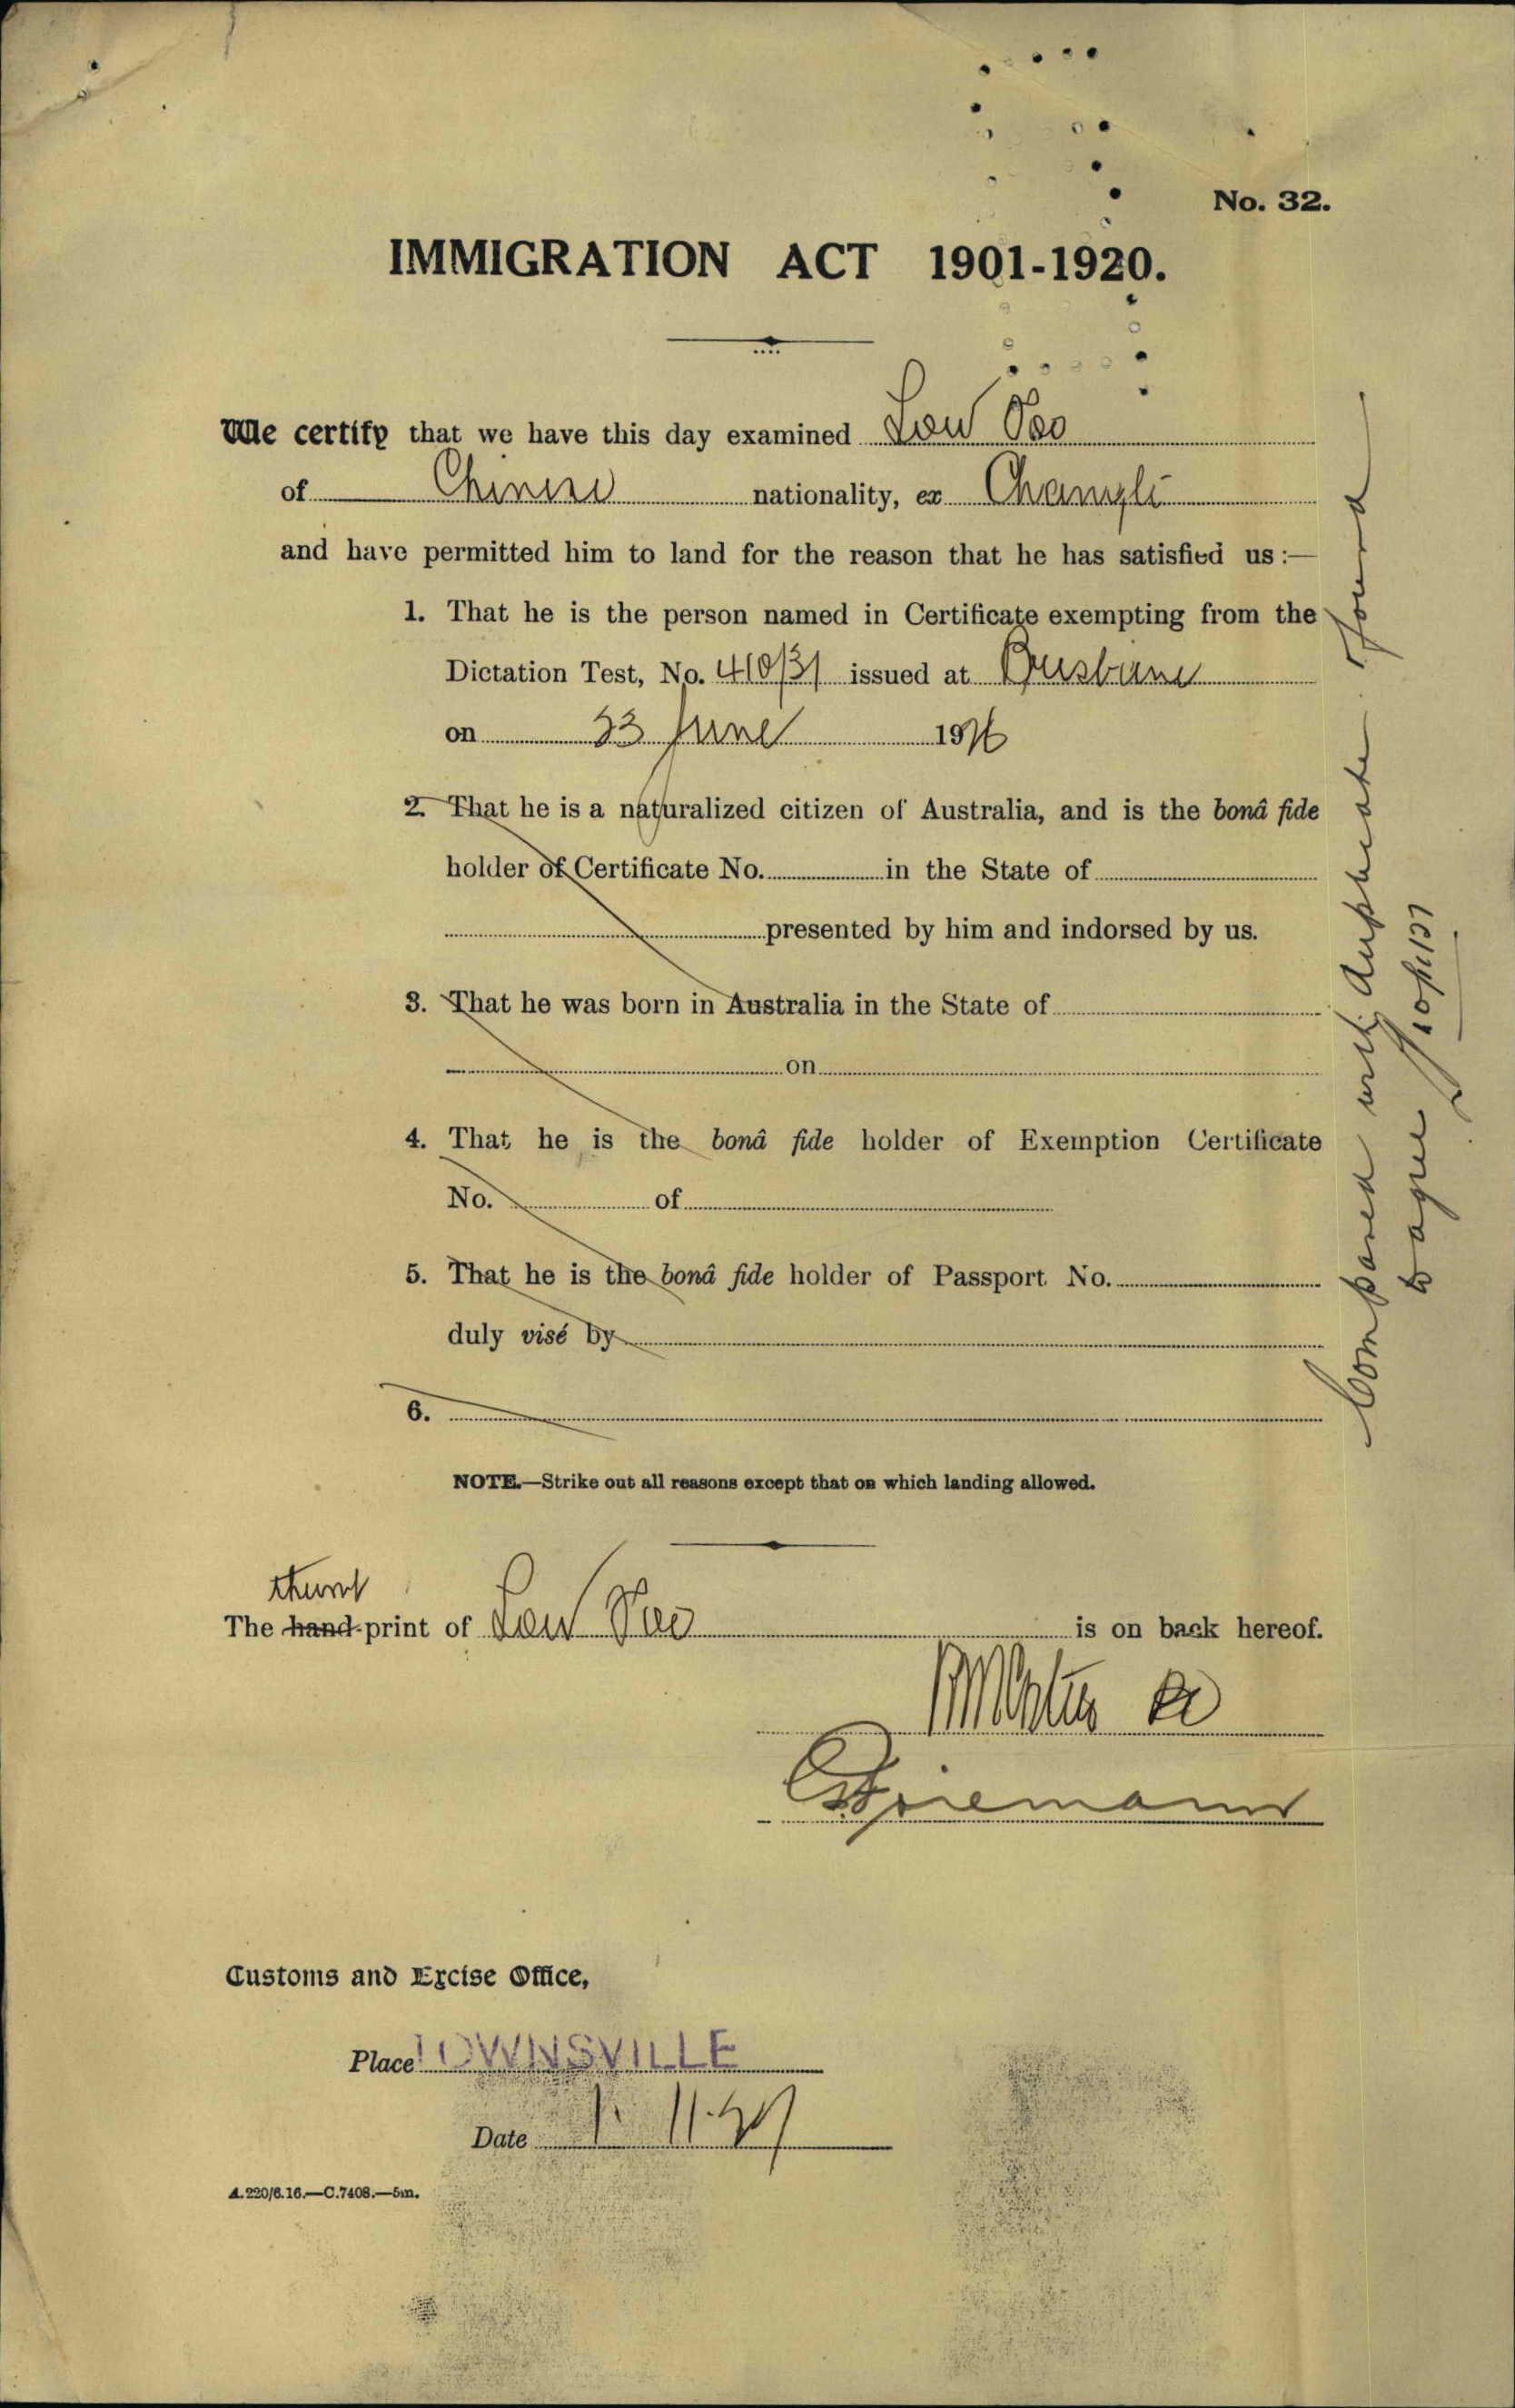 No. 32.
IMMIGRATION ACT 1901-1920.
We certify that we have this day examined Low
of Chinese nationality, ex Changte
and have permitted him to land for the reason that he has satisfied us:—
1. That he is the person named in Certificate exempting from the
Dictation Test, No. 410/31 issued at Brisbane
on 23 June 1926
2. That he is a naturalized citizen of Australia, and is the bonâ fide
holder of Certificate No. in the State of
presented by him and indorsed by us.
3. That he was born in Australia in the State of
on
4. That he is the bonâ fide holder of Exemption Certificate
No. of
5. That he is the bonâ fide holder of Passport No.
duly visé by
6.
NOTE.—Strike out all reasons except that on which landing allowed.
thumb
The hand-print of Low is on back hereof.
Customs and Excise Office,
Place TOWNSVILLE
Date 11.27
A.220/6.16.—C.7408.—5m.
Compared with duplicate & found
to agree